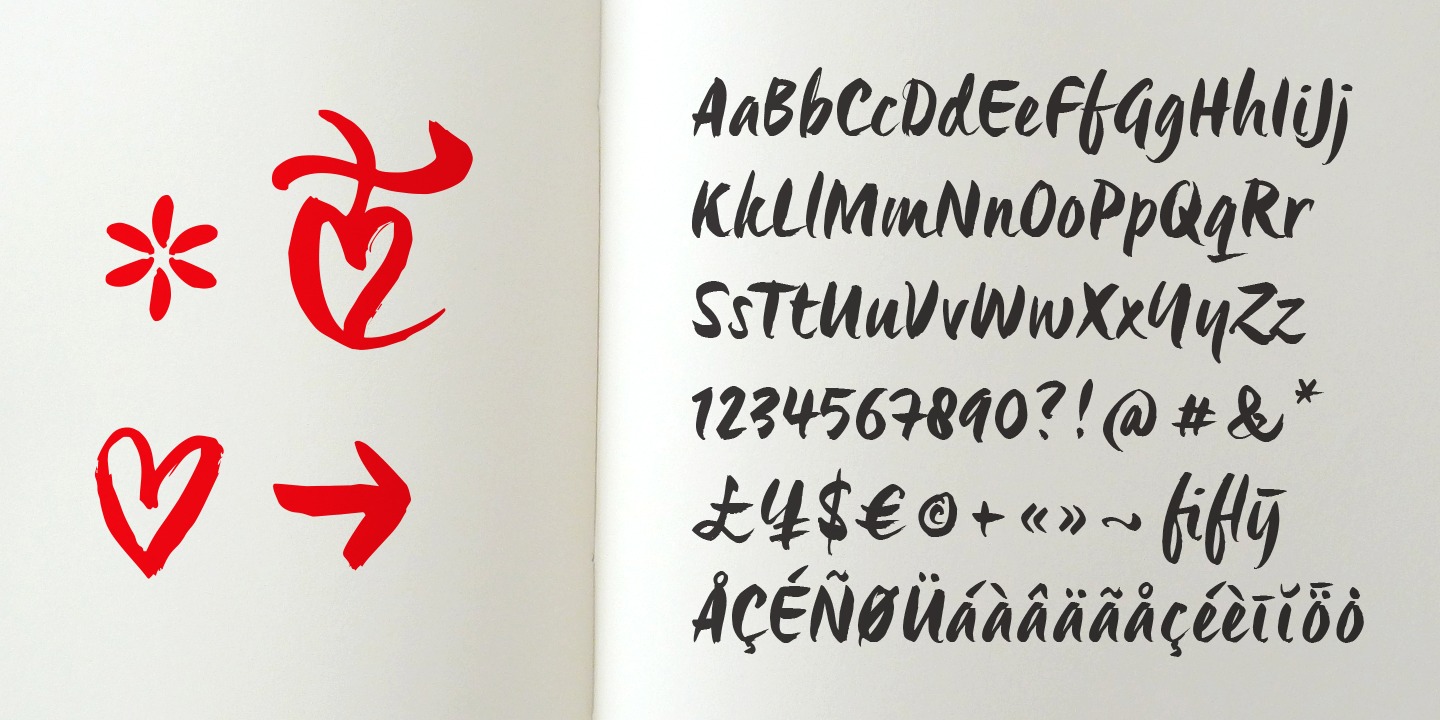 AaBbCcDdEeFfGgHhIiJj
KkLlMmNnOoPpQqRr
SsTtUuVvWwXxYyZz
1234567890?!@#&*
£¥$€©+«»~fiflȳ
ÅÇÉÑØÜáàâäãåçéèīĭȫȯ